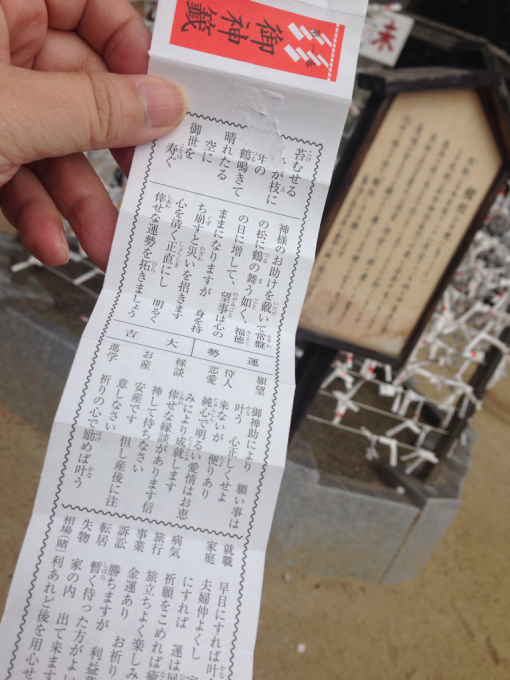 御神籤
苔むせる
が枝に
年の 鶴鳴きて
晴れたる 空に
御世を 寿ぐ
神様のお助けを戴いて常盤
の松に鶴の舞う如く、福徳
の日に増して、望事は心の
ままになりますが 身を持
ち崩すと災いを招きます
心を清く正直にし 明るく
倖せな運勢を拓きましょう
運勢
大吉
願望 御神助により 願い事は
叶う 心正しくせよ
待人 来ないが 便りあり
恋愛 純心で明るい愛情はお恵
みにより成就します
縁談 倖せな縁談があります信
神して待ちなさい
お産 安産です 但し産後に注
意しなさい
進学 祈りの心で励めば叶う
就職 早目にすれば叶
家庭 夫婦仲よくし
にすれば 運は展
病気 祈願をこめれば癒
旅行 旅立ちよく楽しみ
事業 金運あり お祈り
訴訟 勝ちますが 利益
転居 暫く待った方がよい
失物 家の内 出て来ます
相場(賭) 利あれど後を用心せ